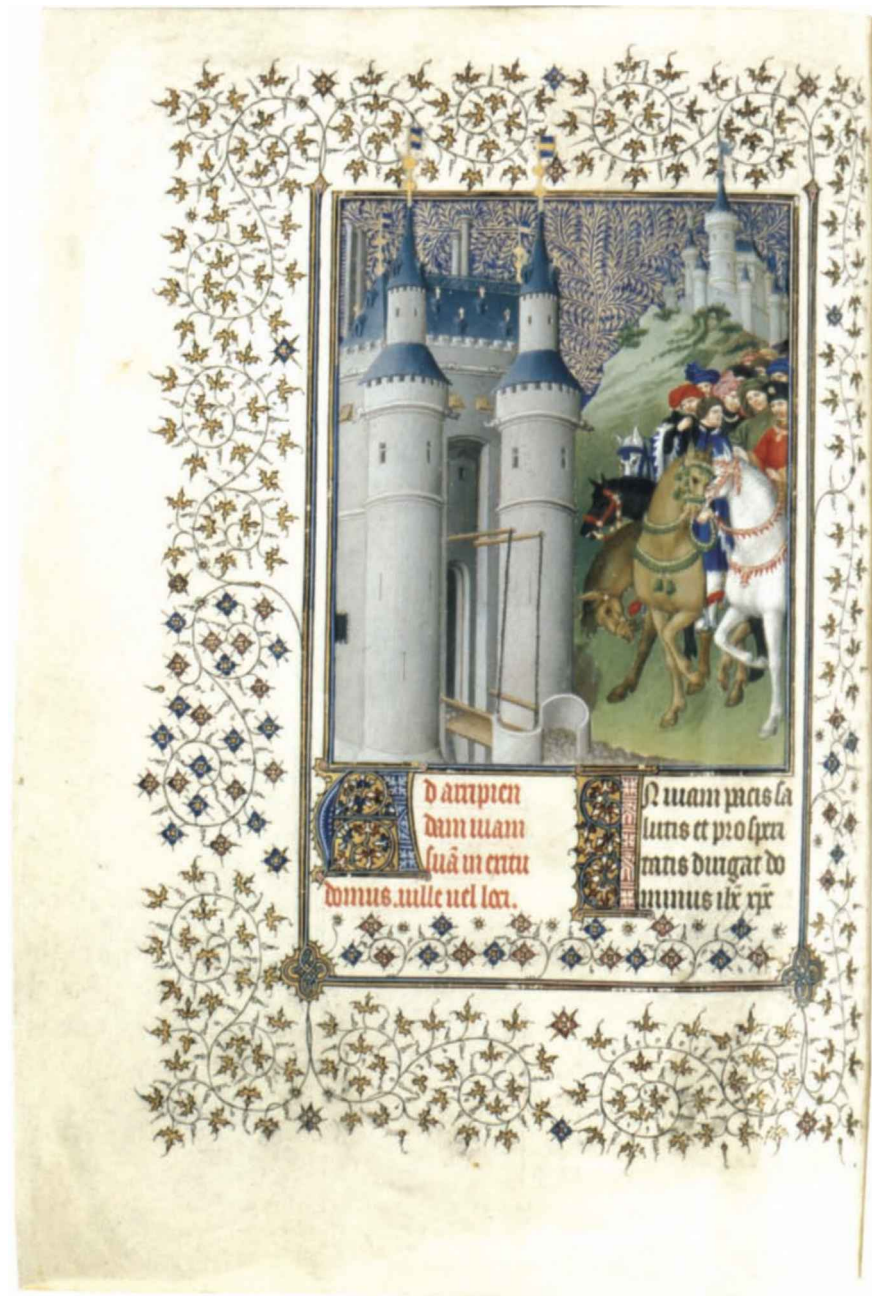 Ad arripien
dam uiam
suā in exitu
domus. uille uel loci.
IN uiam pacis sa
lutis et prosperi
tatis dirigat do
minus ih̄c xp̄c